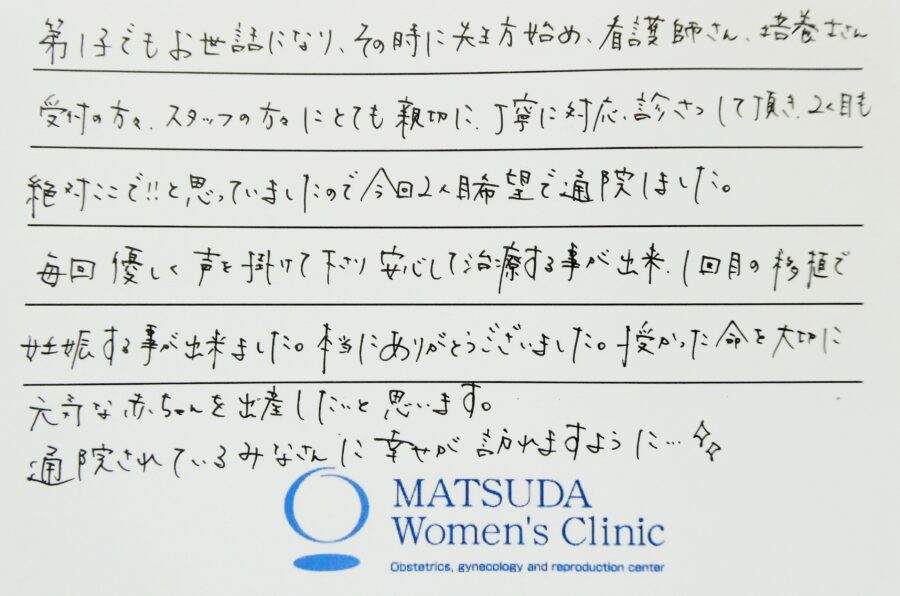 第1子でもお世話になり、その時に先生方始め、看護師さん、培養士さん
受付の方々、スタッフの方々にとても親切に、丁寧に対応、診さつして頂き、2人目も
絶対ここで!!と思っていましたので今回2人目希望で通院しました。
毎回優しく声を掛けて下さり安心して治療する事が出来、1回目の移植で
妊娠する事が出来ました。本当にありがとうございました。授かった命を大切に
元気な赤ちゃんを出産したいと思います。
通院されているみなさんに幸せが訪れますように…
MATSUDA
Women's Clinic
Obstetrics, gynecology and reproduction center